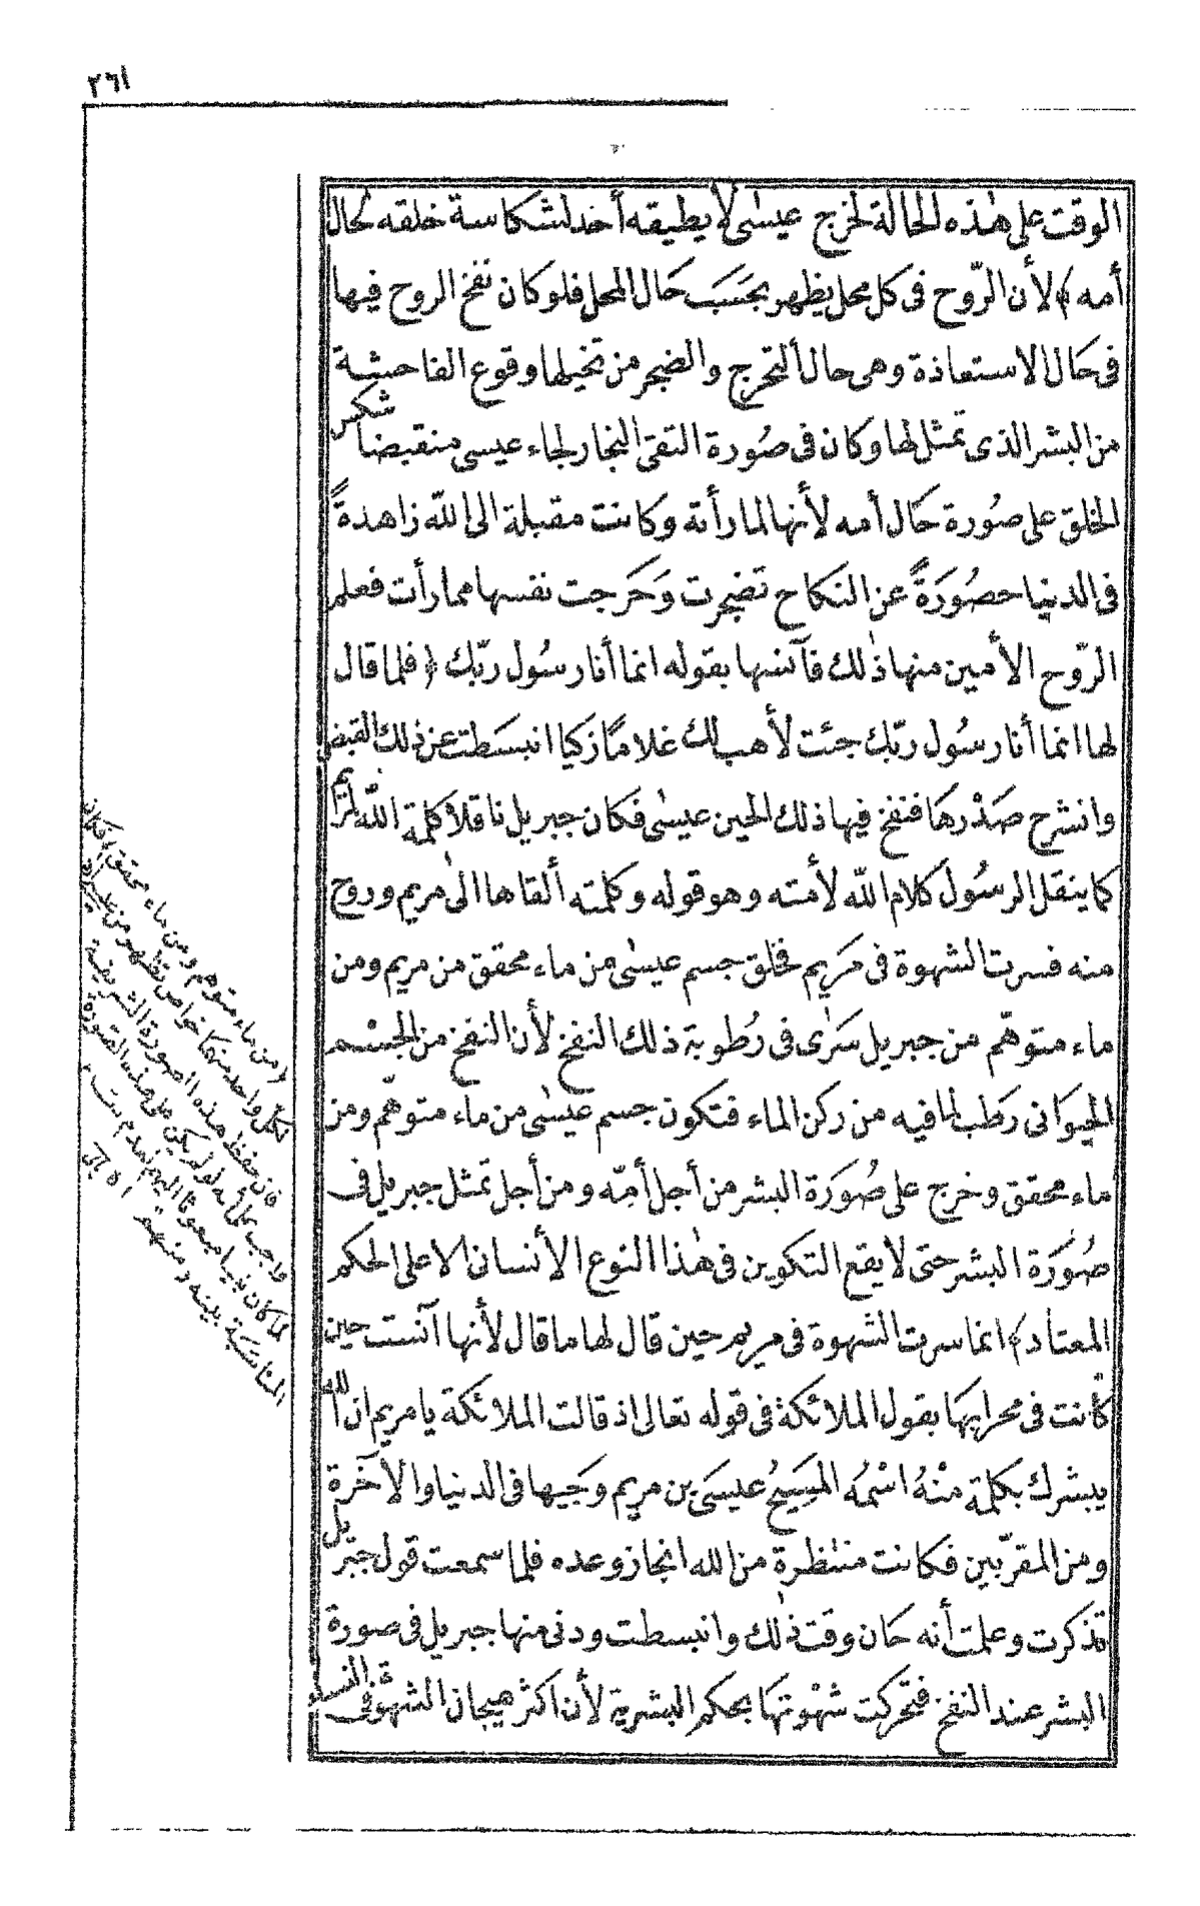 ٢٦١
الوقت على هٰذه الحالة لخرج عيسٰى لا يطيقه أحد لشكاسة خلقه لحال
أمه﴾ لأن الرّوح فى كل محل يظهر بحَسَب حَال المحل فلو كان نفخ الروح فيها
فى حَال الاستعاذة وهى حال التحرج والضجر من تخيلها وقوع الفاحشة
من البشر الذى تمثل لها وكان فى صُورة التقى النجار لجاء عيسى منقبضا شكس
الخلق على صُورة حَال أمه لأنها لما رأته وكانت مقبلة الى الله زاهدةً
فى الدنيا حصُورَةً عن النكاح تضجرت وَحَرجت نفسها مما رأت فعلم
الرّوح الأمين منها ذٰلك فآنسها بقوله انما أنا رسُول ربّك ﴿فلما قال
لها انما أنا رسُول ربّك جئت لأهب لك غلامًا زكيا انبسَطت عن ذلك القبض
وانشرح صَدْرهَا فنفخ فيها ذلك الحين عيسٰى فكان جبريل ناقلا كلمة الله لمريم
كما ينقل الرسُول كلام الله لأمته وهو قوله وكلمته ألقاها الىٰ مريم وروح
منه فسرت الشهوة فى مَريم فخلق جسم عيسٰى من ماء محقق من مريم ومن
ماء متوهّم من جبريل سَرٰى فى رُطوبة ذلك النفخ لأن النفخ من الجسْم
الحيوَانى رَطب لما فيه من ركن الماء فتكون جسم عيسٰى من ماء متوهّم ومن
ماء محقق وخرج على صُورَة البشر من أجل أمِّه ومن أجل تمثل جبريل فى
صُورَة البشر حتى لا يقع التكوين فى هٰذا النوع الأنسانى الا على الحكم
المعتاد﴾ انما سرت الشهوة فى مريم حين قال لها ما قال لأنها آنست حين
كانت فى محرابها بقول الملائكة فى قوله تعالى اذ قالت الملائكة يا مريم ان الله
يبشرك بكلمة مِنْهُ اسْمُه المَسِيحُ عيسَى بن مريم وَجيها فى الدنيا والآخرة
ومن المقرّبين فكانت منتظرة من الله انجاز وعده فلما سمعت قول جبريل
تذكرت وعلمت أنه حَان وقت ذٰلك وانبسطت ودنى منها جبريل فى صورة
البشر عند النفخ فتحركت شهْوتهَا بحكم البشرية لأن اكثر هيجان الشهوة فى النساء
﴿من ماء متوهم ومن ماء محقق﴾ فكان
لكل واحد منهما خواص تظهر من عيسى
فان حفظ هذه الصورة الشريفة
واجب على أنه لو لم يكن على هذه الصورة
لما كان نبيا مبعوثا اليهم لعدم
المناسَبة بينه وبينهم اه بالى